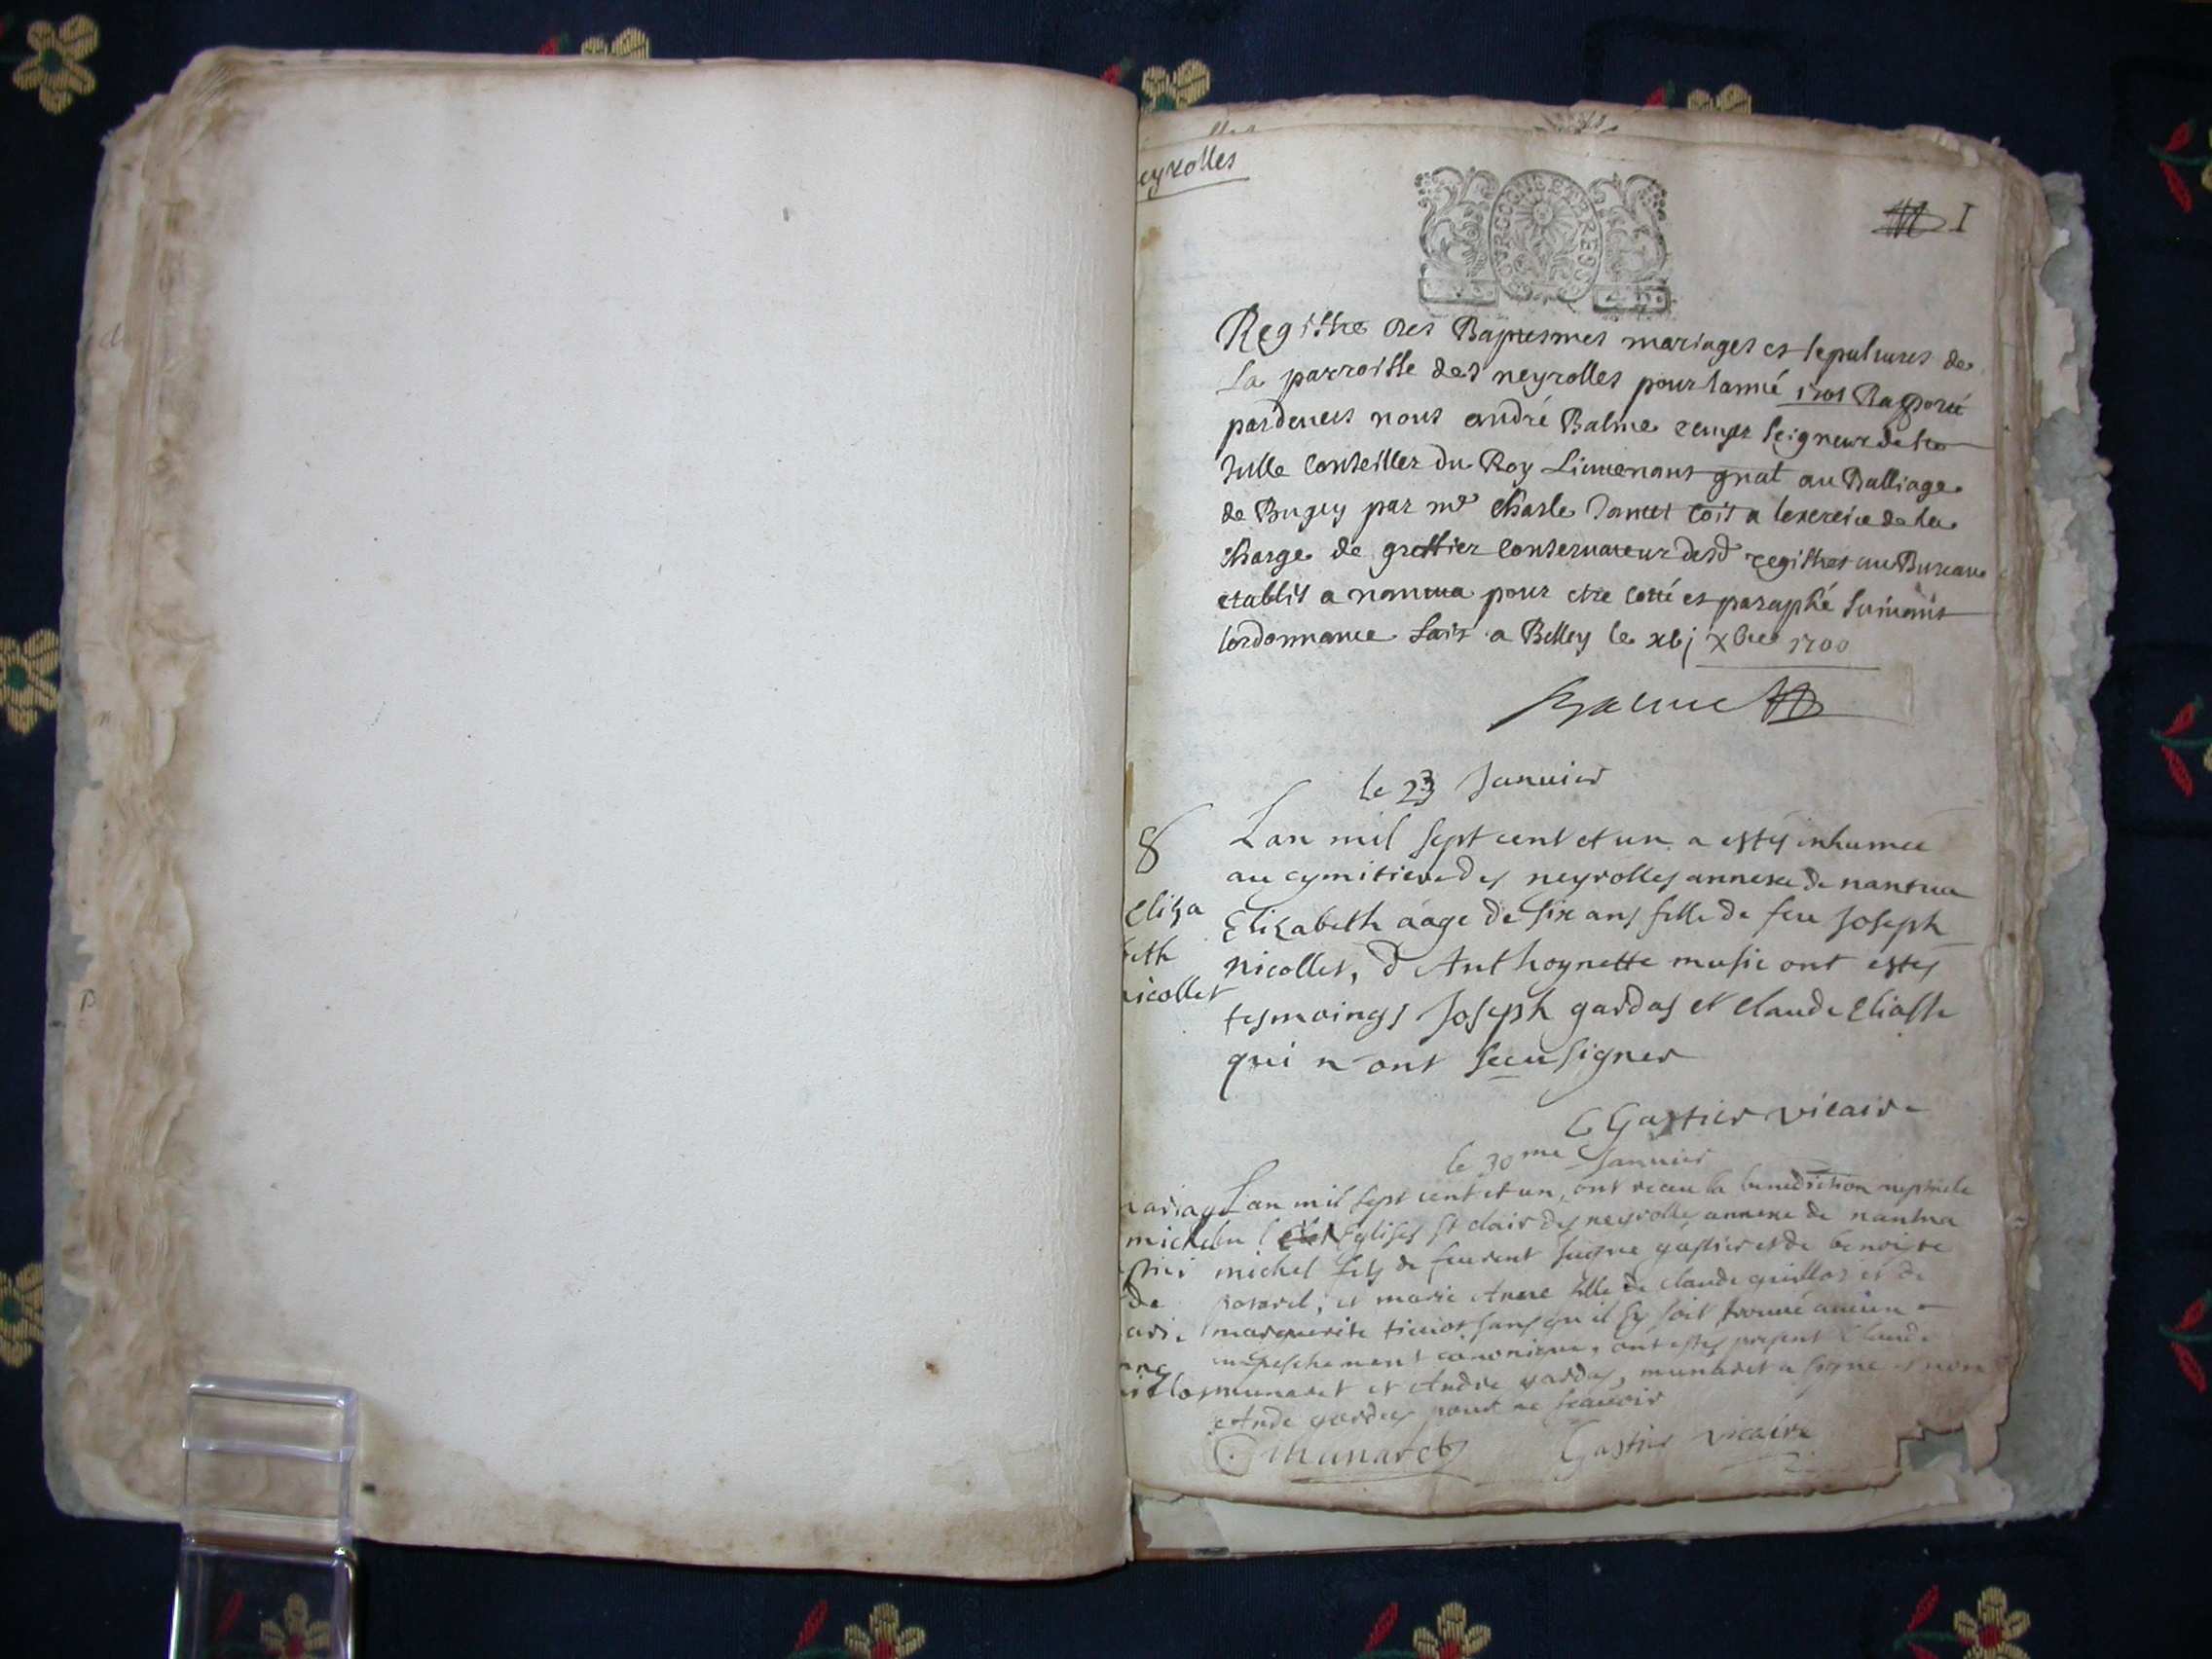 eyrolles
I
BOVRGOGNE ET BRESSE
Registre des Baptesmes mariages et sepultures de
la parroisse des neyrolles pour lannée 1701 Raporté
pardevers nous andré Balme ecuyer seigneur de
Conseiller du Roy Lieutenant gnal au Balliage
de Bugey par mr Charle commis a lexercice de la
charge de greffier conservateur desd registres au Bureau
etablit a nantua pour etre cotté et paraphé suivant
lordonnance fait a Belley le xbj xbre 1700
Balme
le 23 Januier
8
Lan mil sept cent et un a estés inhumee
au cymitiere des neyrolles annexe de nantua
Eliza
Elizabeth aage de six ans fille de feu Joseph
beth
nicollet, d Anthoynette music ont estes
nicollet
tesmoings Joseph gardas et claude
qui n ont sceu signer
Gastier vicaire
le 30me Januier
mariag
Lan mil sept cent et un, ont receu la benediction nuptiale
michel
en l Eglises St clair des neyrolles annexe de nantua
michel fils de feu gastier et de benoiste
de
et marie Anne fille de claude guilloz et de
marguerite sans qu il sy soit trouué aucun
empeschement canonique, ont estes present Claude
munaret et Andre gardas, munaret a signe et non
Andre gardas pour ne scauoir
C. Munaret Gastier vicaire